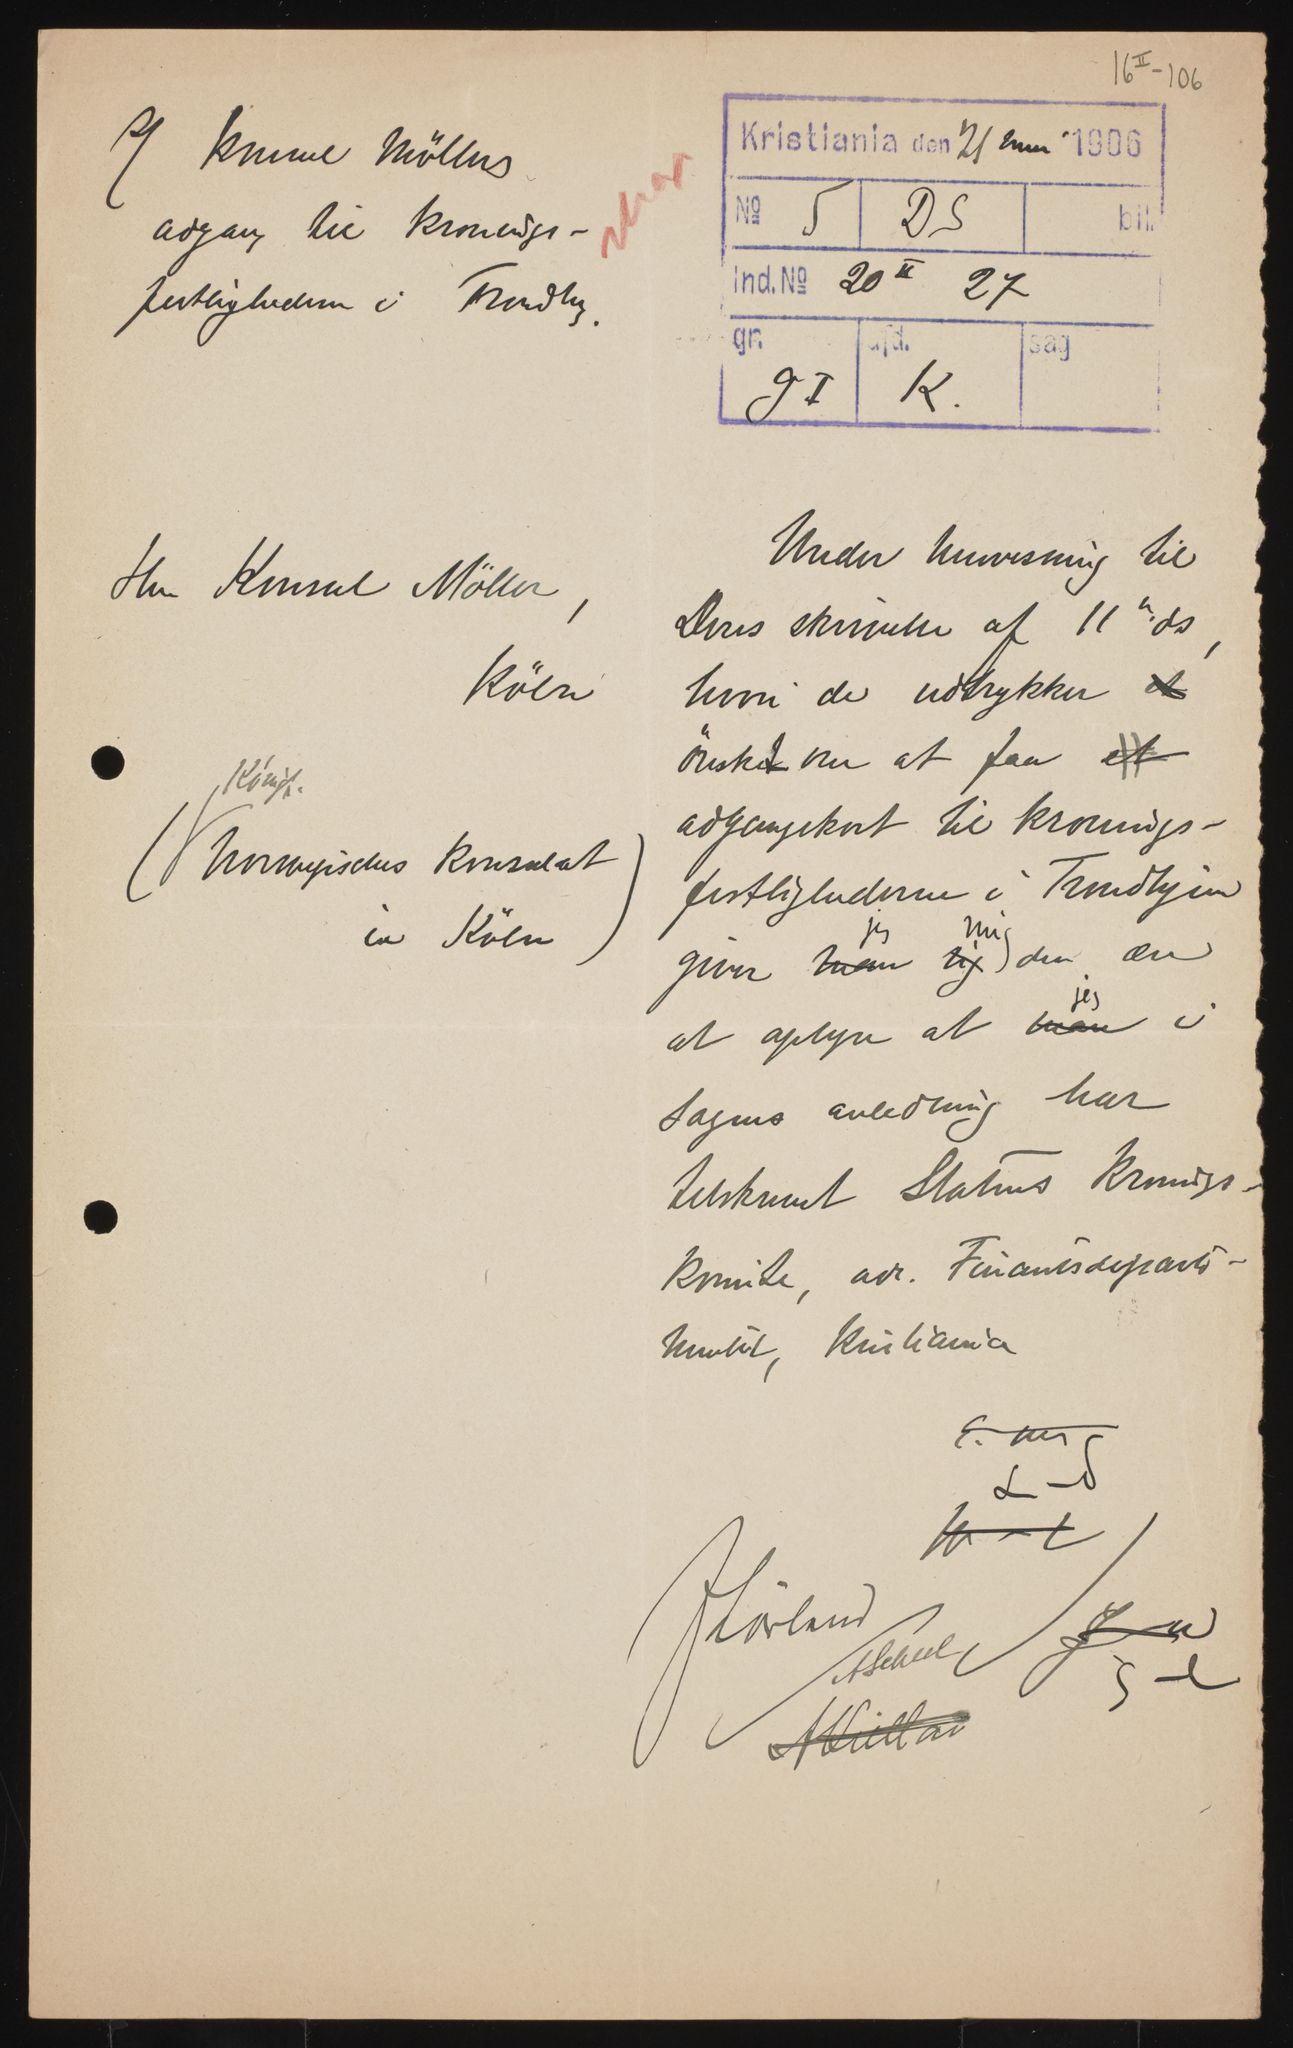 16 II - 106
Konsul Möllers
adgang til kronings-
festlighederne i Trondhj.
Kristiania den 21 mai 1906
No 5 DS bil.
Ind. No 20 II 27
gr. afd. sag
9 I K.
Hr. Konsul Möller,
Köln
Königl.
(Norwegisches Konsulat
in Köln)
Under henvisning til
Deres skrivelse af 11te ds,
hvori de udtrykker et
ønske om at faa et
adgangskort til kronings-
festlighederne i Trondhjem
jeg mig
giver man sig den ære
jeg
at oplyse at man i
sagens anledning har
tilskrevet Statens Kronings-
komite, adr. Finantsdeparte-
mentet, Kristiania
JLövland
AScheel
AKiellan